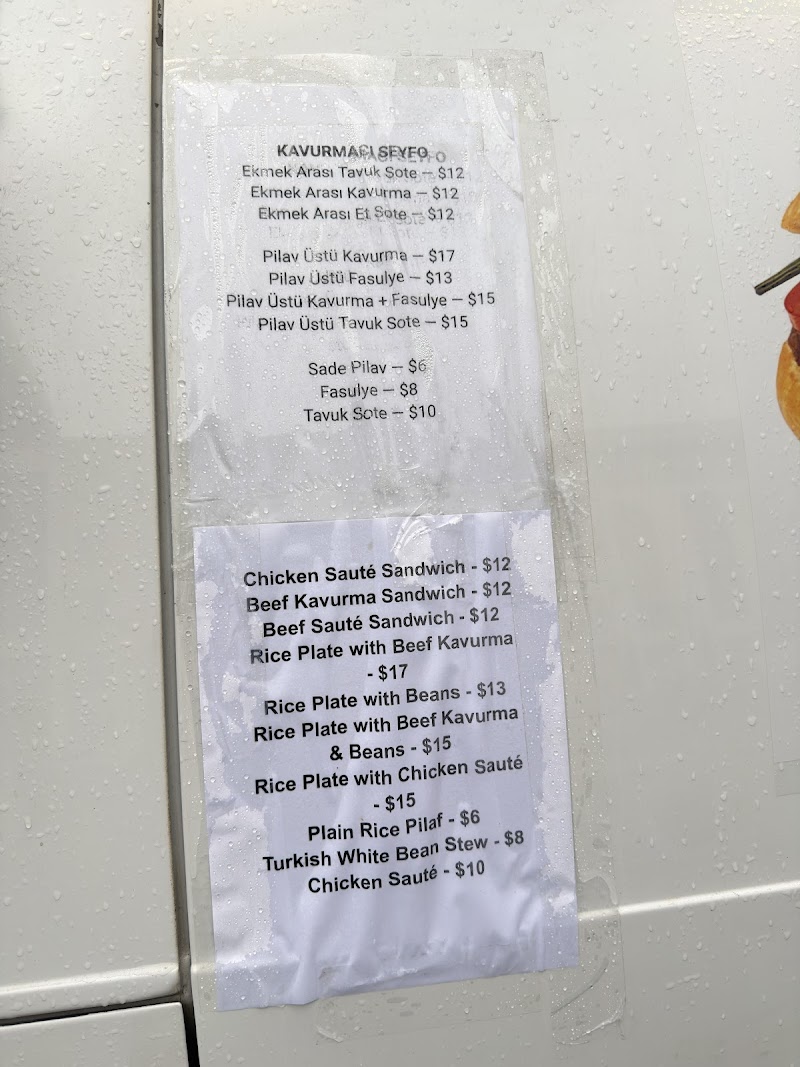 KAVURMACI SEYFO
Ekmek Arası Tavuk Sote – $12
Ekmek Arası Kavurma – $12
Ekmek Arası Et Sote – $12
Pilav Üstü Kavurma – $17
Pilav Üstü Fasulye – $13
Pilav Üstü Kavurma + Fasulye – $15
Pilav Üstü Tavuk Sote – $15
Sade Pilav – $6
Fasulye – $8
Tavuk Sote – $10
Chicken Sauté Sandwich - $12
Beef Kavurma Sandwich - $12
Beef Sauté Sandwich - $12
Rice Plate with Beef Kavurma
- $17
Rice Plate with Beans - $13
Rice Plate with Beef Kavurma
& Beans - $15
Rice Plate with Chicken Sauté
- $15
Plain Rice Pilaf - $6
Turkish White Bean Stew - $8
Chicken Sauté - $10